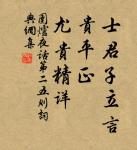 士君子立言
貴平正
尤貴精詳
圍爐夜話第二五則詞
典網集